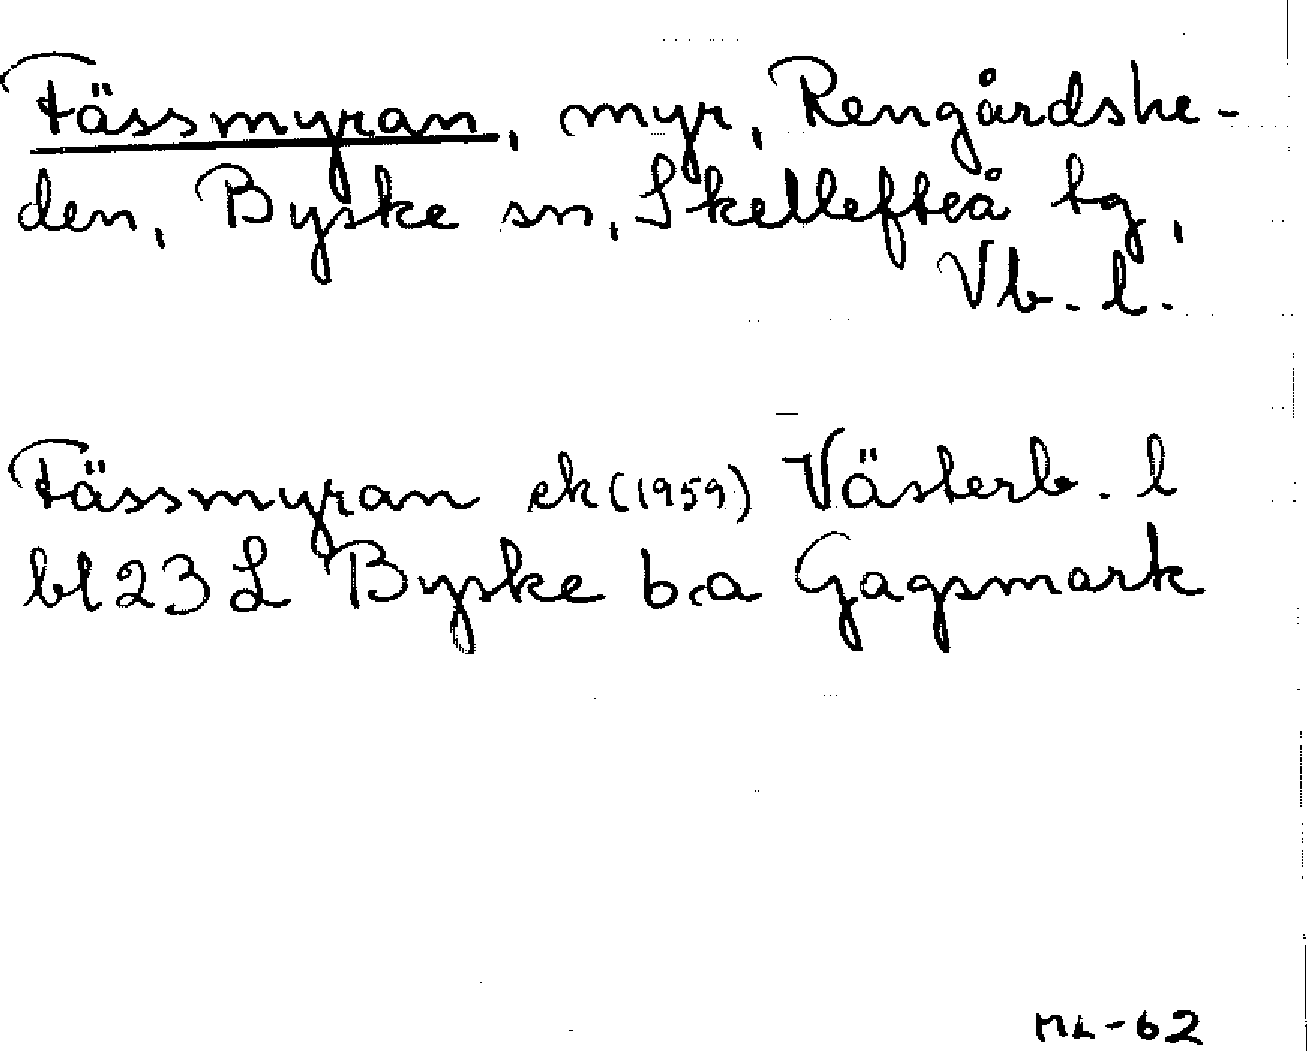 Fässmyran, myr, Rengårdshe-
den, Byske sn, Skellefteå tg,
Vb. l.
Fässmyran ek (1959) Västerb. l
bl 23 L Byske b.a Gagsmark
ML-62